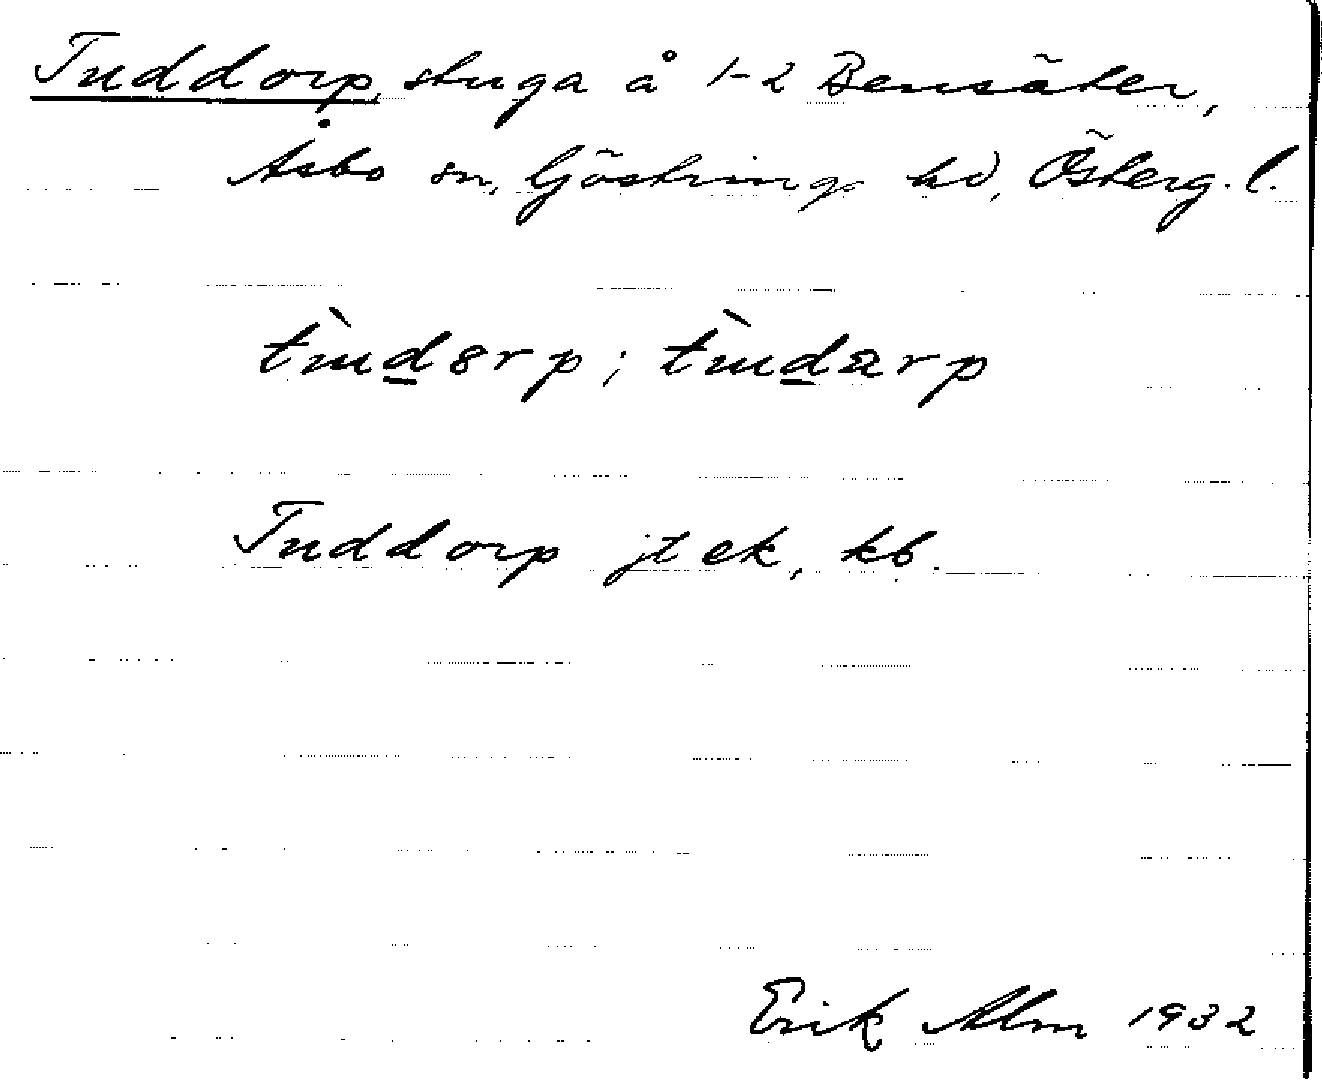 Tuddorp, stuga å 1-2 Bensäter,
Åsbo sn, Göstring hd, Österg. l.
Tuddorp jt ek, kb.
Erik Alm 1932